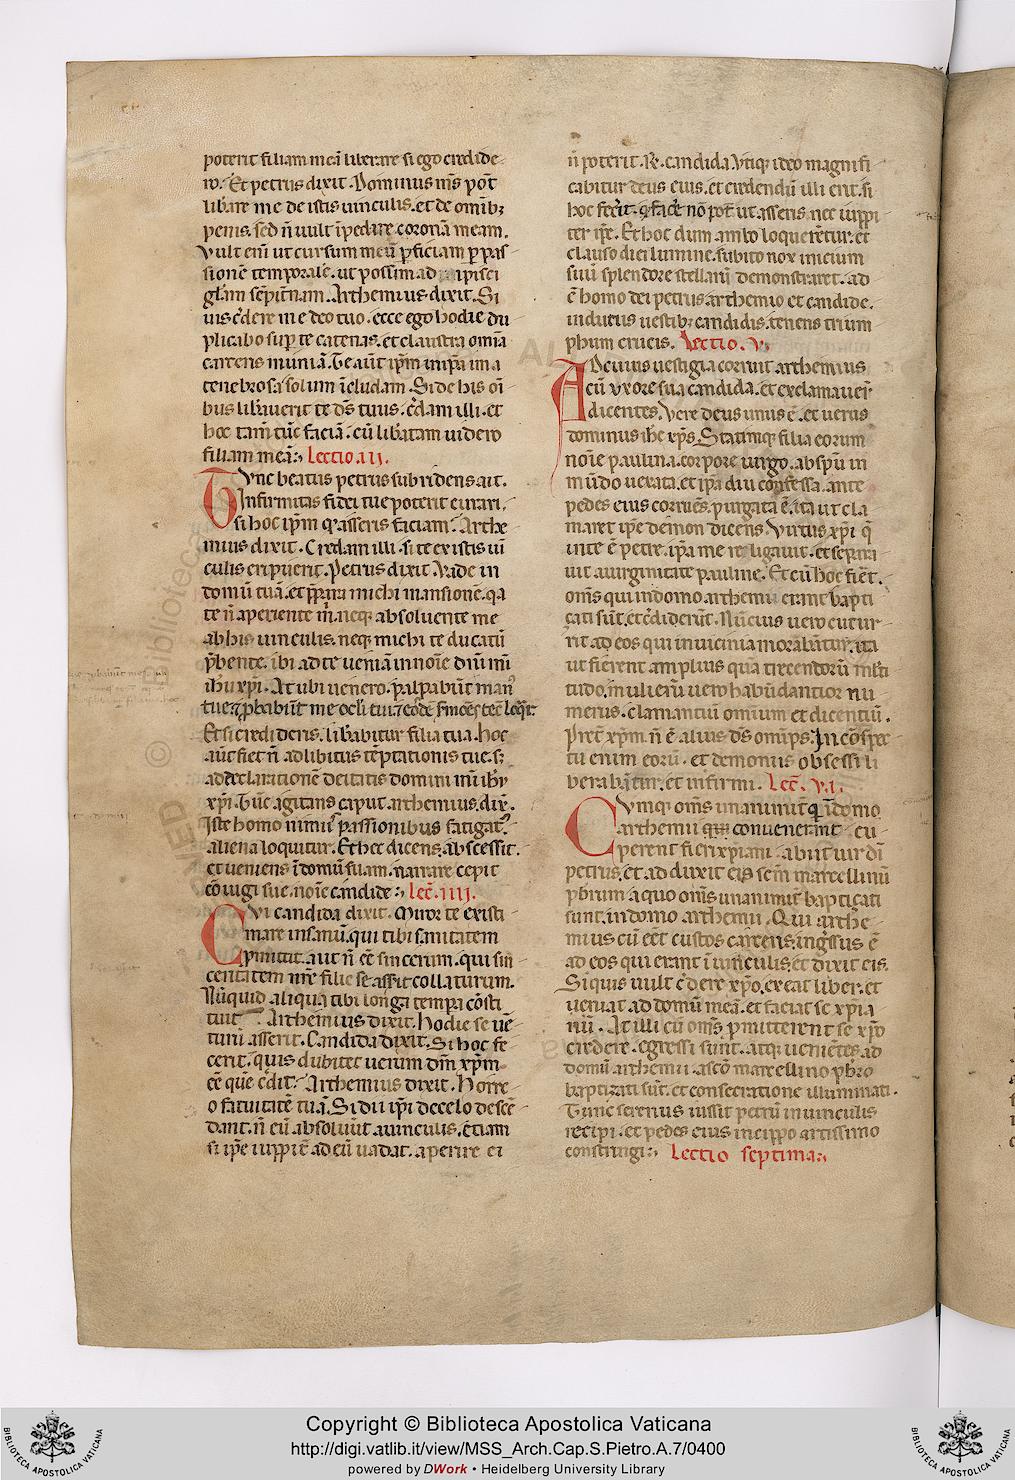 poterit filiam meā liberare si ego credide-
ro. Et petrus dixit. Dominus nr̄s pot̄
lib̄are me de istis uinculis. et de omīb;
penis. sed n̄ uult īpedire coronā meam.
Vult eni᷑ ut cursum meū ꝑficiam ꝑ pas-
sionē temporalē. ut possim adipisci
gl̄am sēpit̄nam. Arthemius dixit. Si
uis c̄dere me deo tuo. ecce ego hodie du-
plicabo suꝑ te catenas. et claustra om̄ia
carceris muniā. Te aūt ip̄m in ip̄a ima
tenebrosa solum īcludam. Si de his om̄-
bus lib̄auerit te dr̄s tuus. c̄dam illi. et
hoc tam̄ tūc faciā. cū lib̄atam uidero
filiam meā. Lectio .III.
Tunc beatus petrus subridens ait.
Infirmitas fidei tue poterit curari.
si hoc ip̄m qđ asseris faciam. Arthe-
mius dixit. Credam illi. si te ex istis ui-
culis eripuerit. Petrus dixit. Vade in
domū tuā. et p̄para michi mansionē. qa
te n̄ aperiente m̄. neq; absoluente me
ab his uinculis. neq; michi te ducatū
p̄bente. ibi ad te ueniā in noīe dn̄i nr̄i
ih̄u xp̄i. At ubi uenero. palpabūt man᷒
Et si credideris. lib̄abitur filia tua. Hoc
aūt fiet n̄ ad libitus tēptationis tue. s;
ad declarationē deitatis domini nr̄i ih̄u
xp̄i. Tūc agitans caput arthemius. dix̄.
Iste homo nimi᷒ passionibus fatigat᷒
aliena loquitur. Et hec dicens. abscessit.
et ueniens ī domū suam. narrare cepit
cōiugi sue. noīe candide. Lec̄. IIII.
Cui candida dixit. Miror te existi-
mare insanū. qui tibi sanitatem
ꝓmittit. aut n̄ eē sincerum. qui sin-
ceritatem nr̄e filie se asserit collaturum.
Nūquid aliqua tibi longa tempa cōsti-
tuit. Arthemius dixit. Hodie se uē-
turū asserit. Candida dixit. Si hoc fe-
cerit. quis dubitet uerum dm̄ xp̄m
eē quē c̄dit. Arthemius dixit. Horre-
o fatuitatē tuā. Si dii ip̄i de celo descē-
dant. n̄ eū absoluūt a uinculis. Etiam
si ip̄e iuppiē ad eū uadat. aperire ei
n̄ poterit. Candida. Vtiq; ideo magnifi-
cabitur deus eius. et credendū illi erit. si
hoc fec̄it. qđ face̅ nō pot̄ ut asseris. nec iuppi-
ter ip̄e. Et hoc dum ambo loquerētur. et
clauso diei lumine. subito nox inicium
suū splendore stellarū demonstraret. ad
ē homo dei petrus arthemio et candide.
indutus uestib; candidis. tenens trium-
phum crucis. Lectio .V.
Ad cuius uestigia corruit arthemius
cū uxore sua candida. et exclamauer̄
dicentes. Vere deus unus ē. et uerus
dominus ih̄c xp̄s. Statimq; filia eorum
noīe paulina. corpore uirgo. ab sp̄u in-
mūdo uexata. et ip̄a diu confessa. ante
pedes eius corruēs. purgata ē. ita ut cla-
maret ip̄e demon dicens. Virtus xp̄i q̄
in te ē petre. ip̄a me religauit. et separa-
uit a uirginitate pauline. Et cū hoc fiēt.
om̄s qui in domo arthemii erant bapti-
çati sūt. et c̄diderūt. Nūcius uero cucur-
rit ad eos qui in uicinia morabātur. ita
ut fierent amplius quā trecentorū ml̄ti-
tudo. mulierū uero habūdantior nu-
merus. clamantiū omnium et dicentiū.
Preē xp̄m n̄ ē alius dr̄s om̄ps. In cōspec-
tu enim eorū. et demoniis obsessi li-
berabātur. et infirmi. Lec̄. VI.
Cumq; om̄s unanimit̄ q̄ in domo
arthemii conuenerant. cu-
perent fieri xp̄iani. abiit uir dī
petrus. et adduxit eis sc̄m marcellinū
pb̄rum a quo om̄s unanimit̄ baptiçati
sunt. in domo arthemii. Qui arthe-
mius cū eēt custos carceris. ing̅ssus ē
ad eos qui erant ī uinculis. et dixit eis.
Siquis uult c̄dere xp̄o. exeat liber. et
ueniat ad domū meā. et faciat se xp̄ia-
nū. At illi cū om̄s p̄mitterent se xp̄o
credere. egressi sunt. atq; ueniētes ad
domū arthemii. a sc̄o marcellino pb̄ro
baptizati sūt. et consecratione illuminati.
Tunc serenus iussit petrū in uinculis
recipi. et pedes eius in cippo artissimo
constringi. Lectio septima.
Copyright © Biblioteca Apostolica Vaticana
http://digi.vatlib.it/view/MSS_Arch.Cap.S.Pietro.A.7/0400
powered by DWork • Heidelberg University Library
BIBLIOTECA APOSTOLICA VATICANA
BIBLIOTECA APOSTOLICA VATICANA